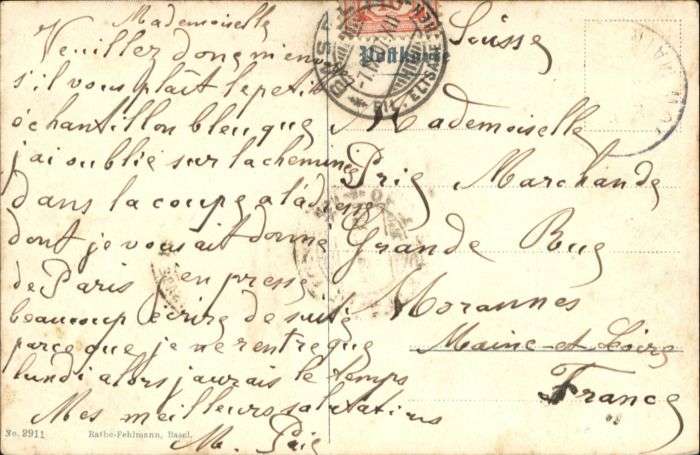 Mademoiselle
Veuillez donc m'envoyer
s'il vous plaît le petit
échantillon bleu que
j'ai oublié sur la cheminée
dans la coupe a l'adresse
dont je vous ait donne
de Paris
beaucoup écrire de suite
parce que je ne rentre que
lundi alors j'aurais le temps
Mes meilleurs salutations
M. Prig
No. 2911
Rathe-Fehlmann, Basel.
Postkarte
Suisse
Mademoiselle
Prig Marchande
Grande Rue
Morannes
Maine-et-Loire
France